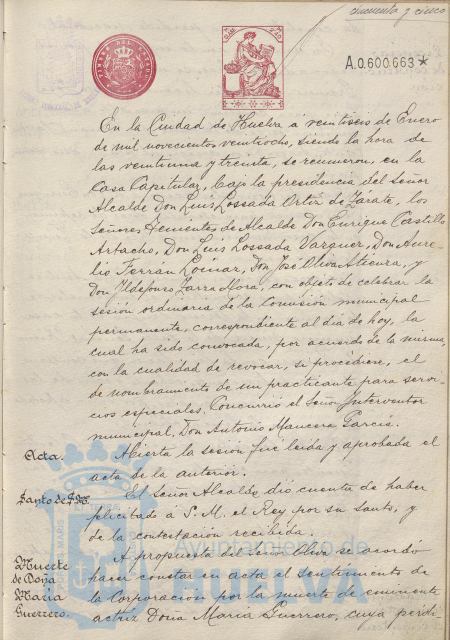 cincuenta y cinco
A.0.600.663*
En la Ciudad de Huelva á veintiseis de Enero
de mil novecientos veintiocho, siendo la hora de
las veintiuna y treinta, se reunieron, en la
Casa Capitular, bajo la presidencia del Señor
Alcalde Don Luis Lossada Ortiz de Zarate, los
Señores, Tenientes de Alcalde Don Enrique Castillo
Artacho, Don Luis Lossada Vazquez, Don Aure-
lio Terran Loinaz, Don José Oliva Atienza, y
Don Ildefonso Zarra Mora, con objeto de celebrar la
sesión ordinaria de la Comisión municipal
permanente, correspondiente al día de hoy, la
cual ha sido convocada, por acuerdo de la misma,
con la cualidad de revocar, si procediese, el
de nombramiento de un practicante para servi-
cios especiales. Concurrió el Señor Interventor
municipal, Don Antonio Mancera Garcia.
Acta.
Abierta la sesión fué leida y aprobada el
acta de la anterior.
Santo de S.M.
El Señor Alcalde dió cuenta de haber
felicitado á S. M. el Rey por su santo, y
de la contestación recibida.
Muerte
de Doña
Maria
Guerrero.
A propuesta del Señor Oliva se acordó
hacer constar en acta el sentimiento de
la Corporación por la muerte de eminente
actriz Doña Maria Guerrero, cuya perdi-
Ayuntamiento de